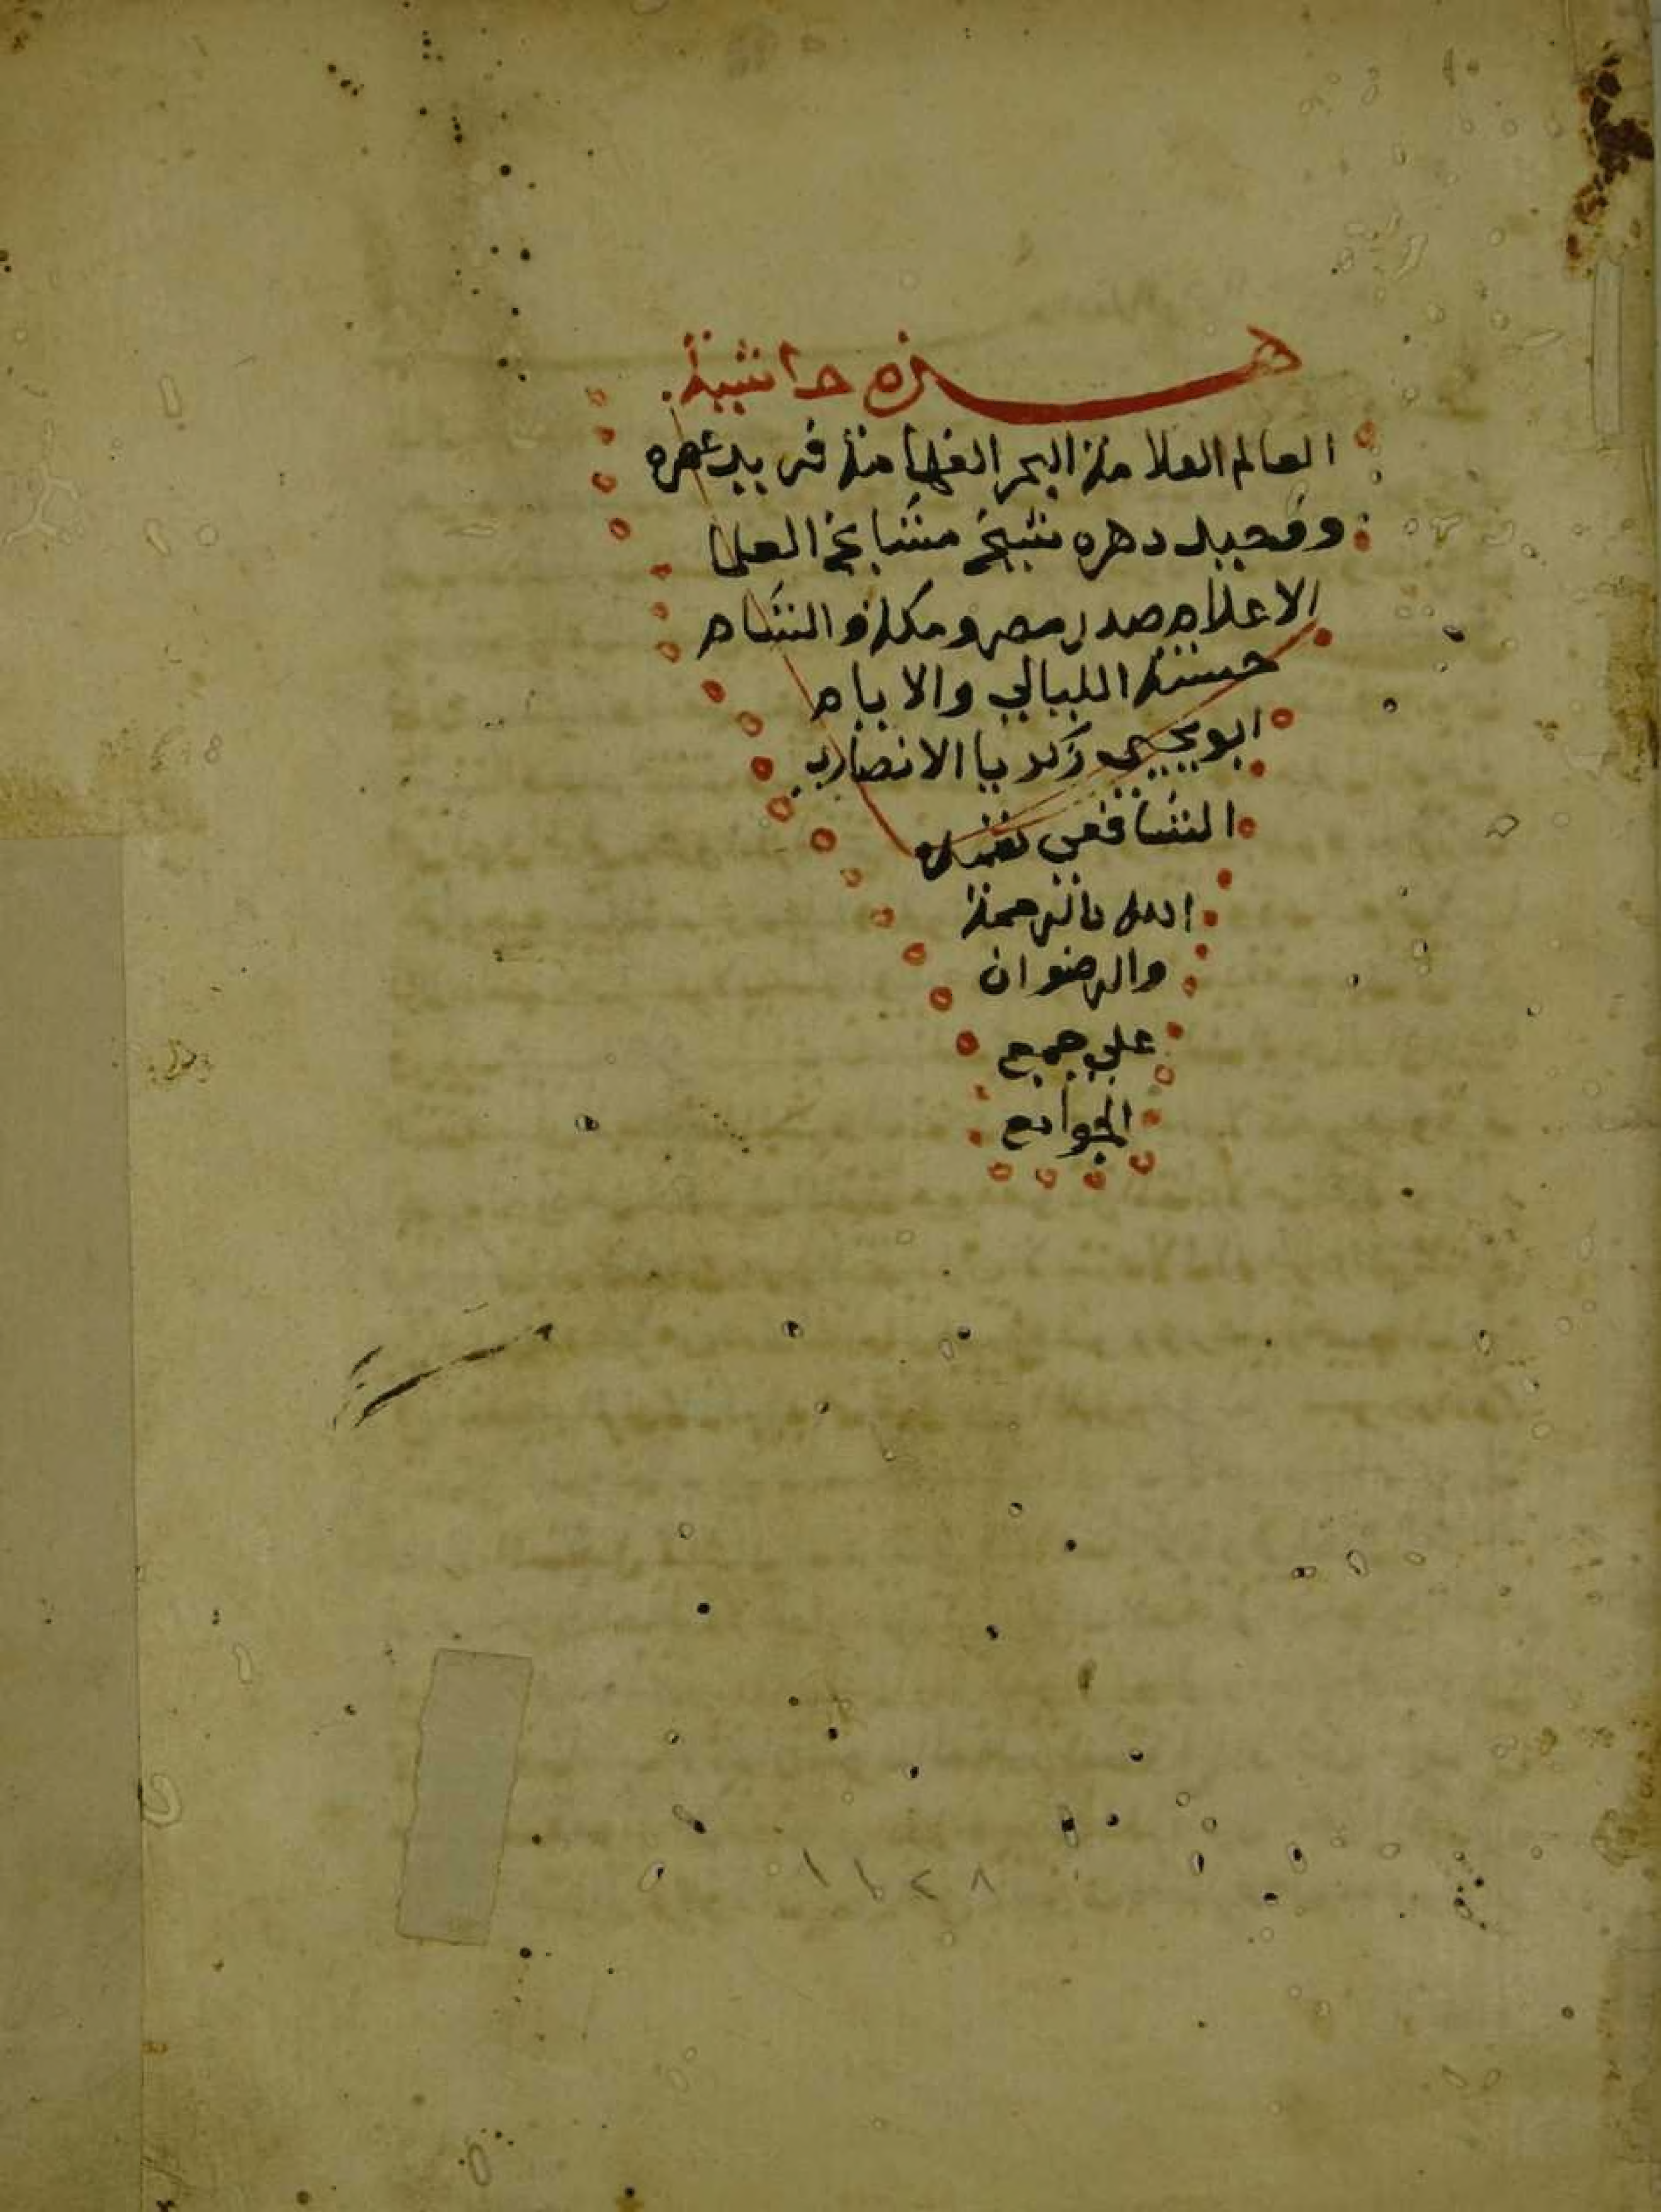 هذه حاشية
العالم العلامة البحر الفهامة فريد عصره
ووحيد دهره شيخ مشايخ العلما
الاعلام صدر مصر ومكة والشام
حسنة الليالي والايام
ابو يحيى زكريا الانصاري
الشافعي تغمده
الله بالرحمة
والرضوان
علي جمع
الجوامع